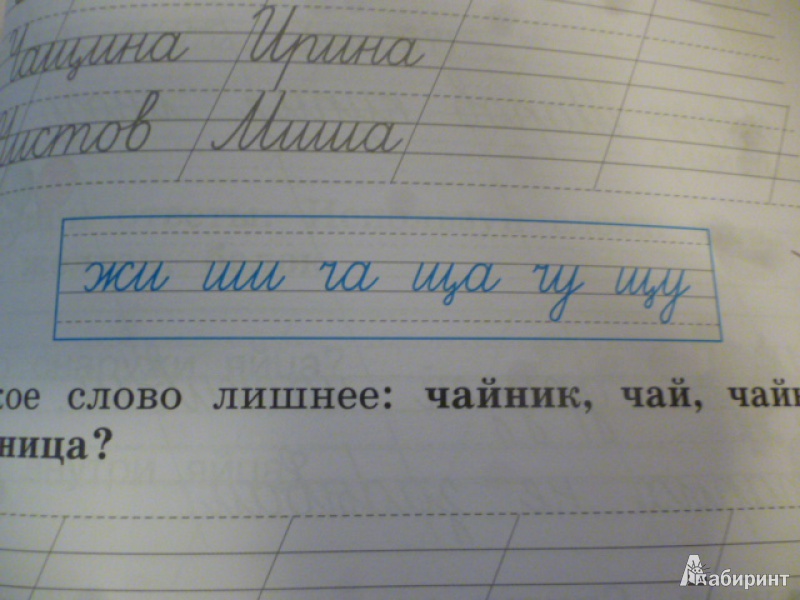 Чащина Ирина
Чистов Миша
жи ши ча ща чу щу
кое слово лишнее: чайник, чай, чайк
ница?
Лабиринт